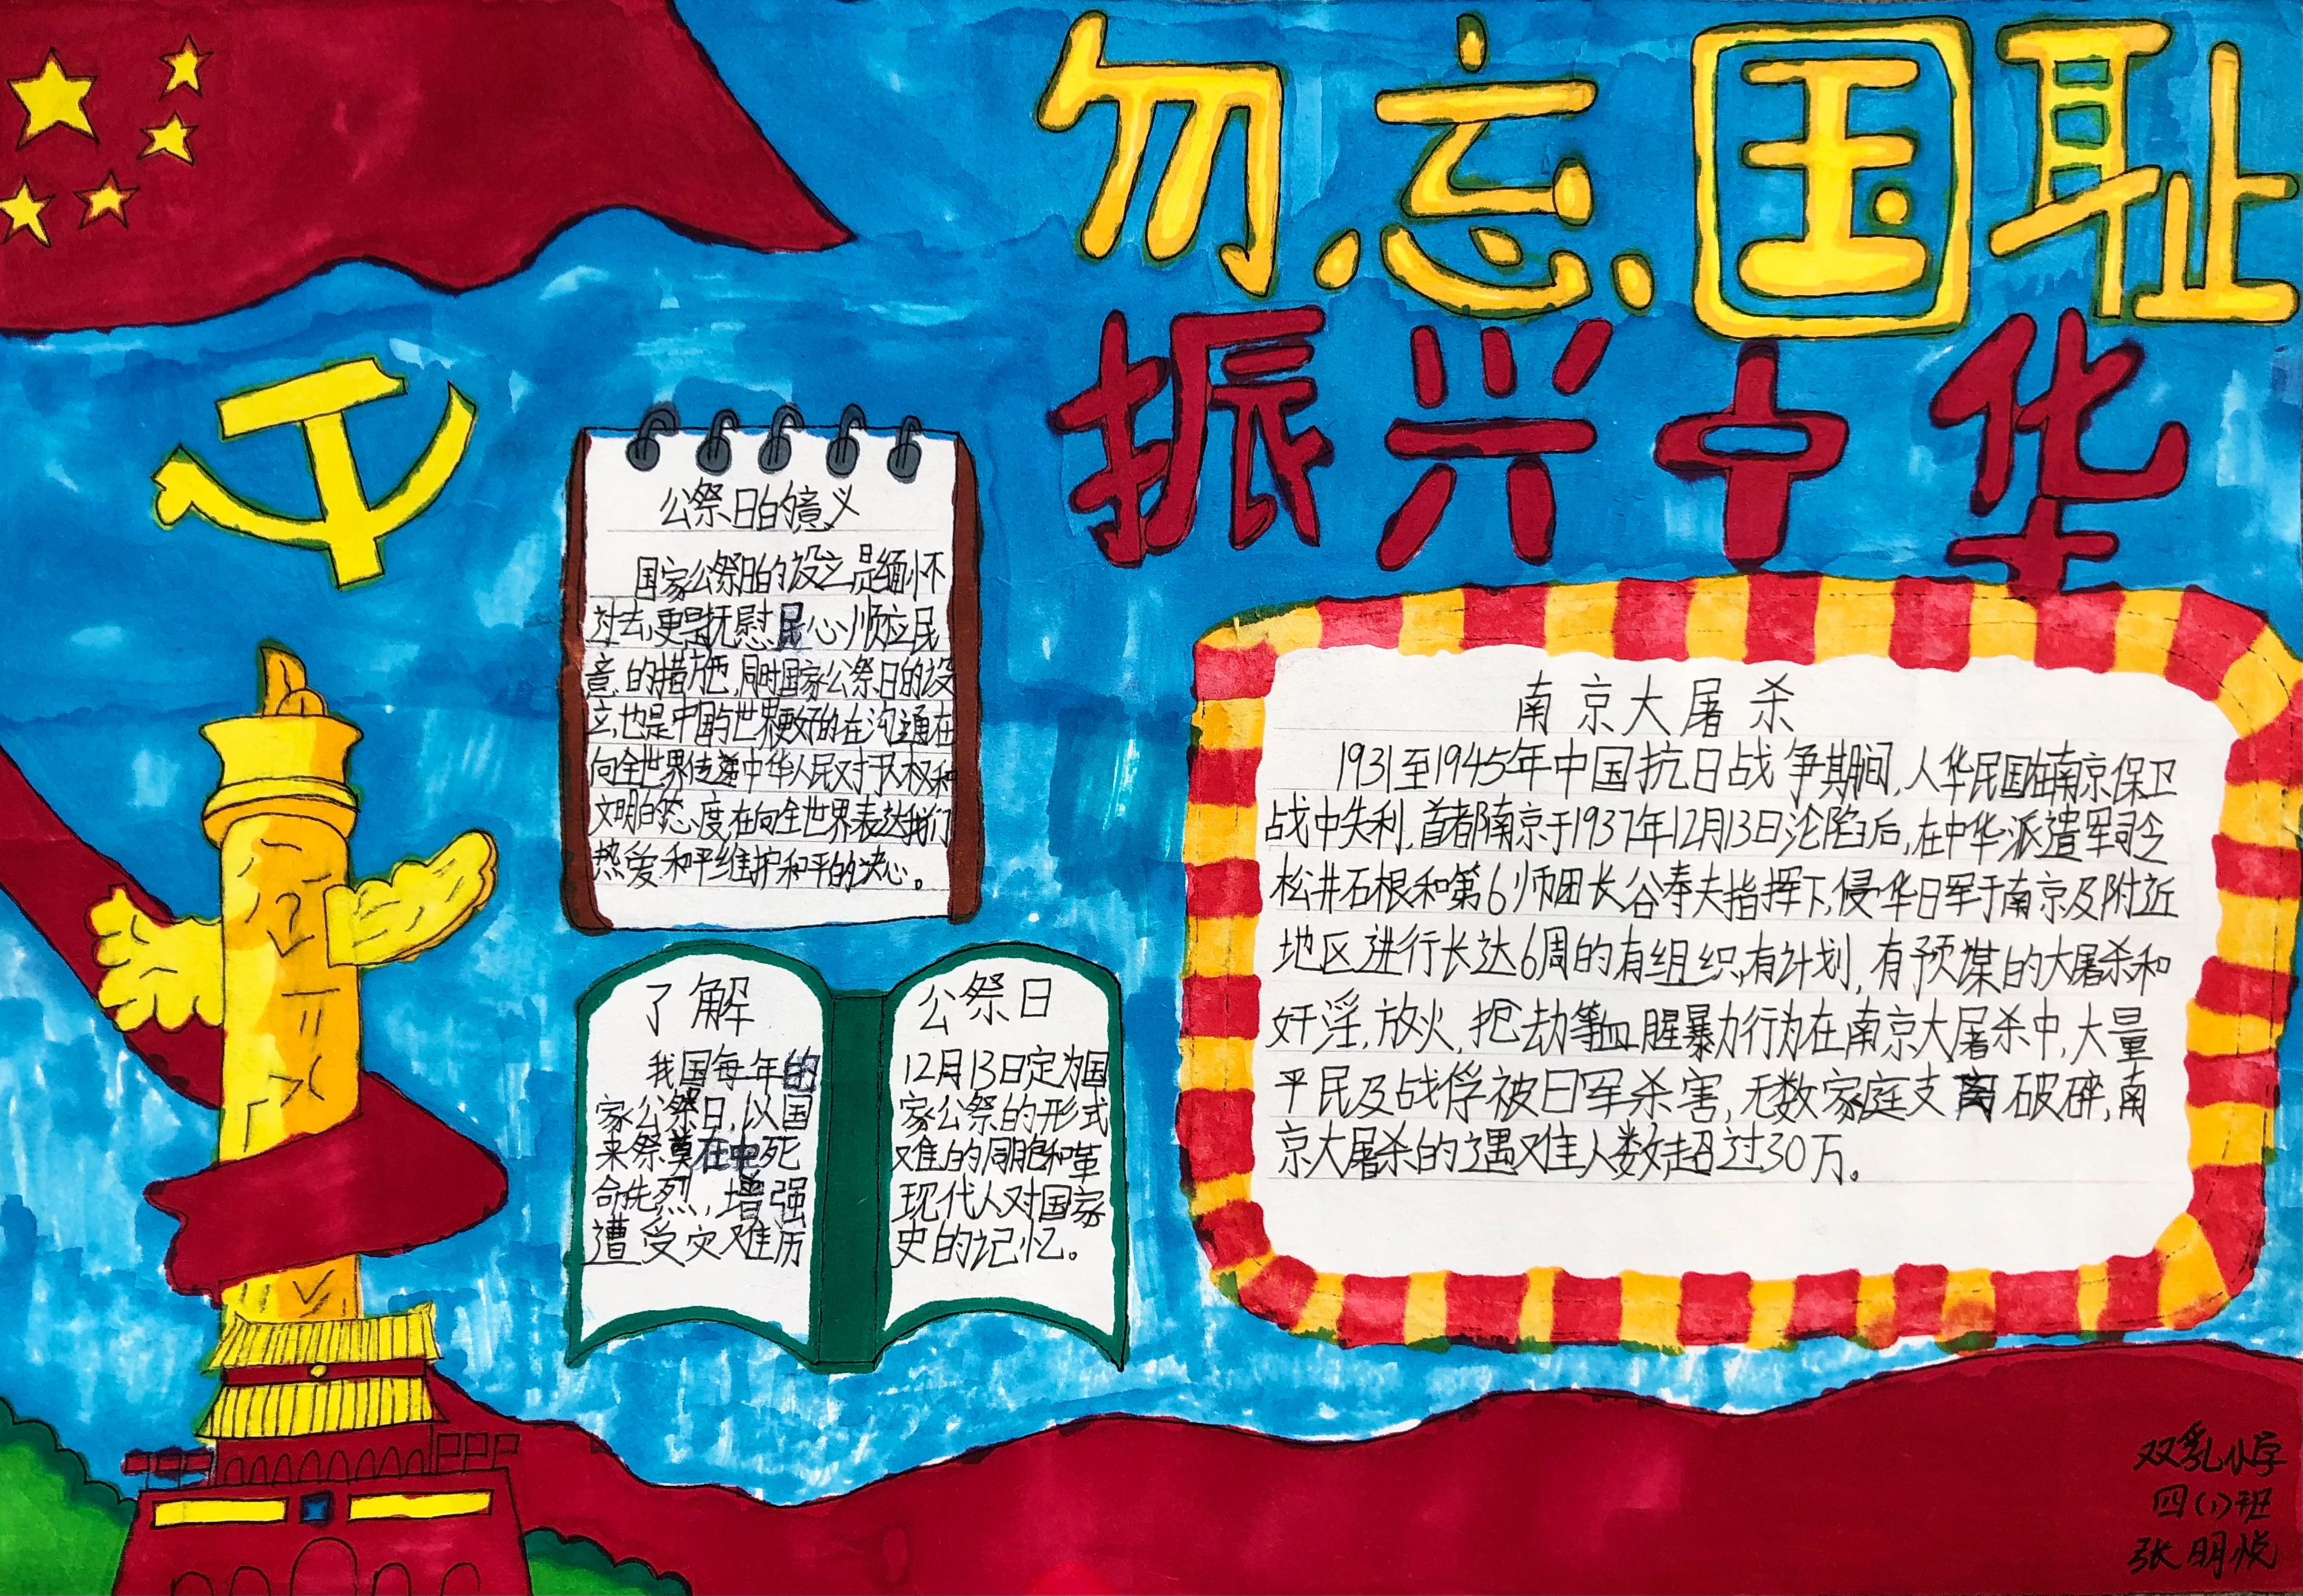 勿忘国耻
振兴中华
公祭日的意义
国家公祭日的设立是缅怀
过去,更是抚慰民心、顺应民
意的措施,同时国家公祭日的设
立,也是中国与世界更好的在沟通在
向全世界传递中华人民对于人权和
文明的态度,在向全世界表达我们
热爱和平维护和平的决心。
了解
我国每年的
家公祭日,以国
来祭奠在中死
命先烈,增强
遭受灾难历
公祭日
12月13日定为国
家公祭的形式
难的同胞和革
现代人对国家
史的记忆。
南京大屠杀
1931至1945年中国抗日战争期间,人华民国在南京保卫
战中失利,首都南京于1937年12月13日沦陷后,在中华派遣军司令
松井石根和第6师团长谷寿夫指挥下,侵华日军于南京及附近
地区进行长达6周的有组织,有计划,有预谋的大屠杀和
奸淫,放火,把劫等血腥暴力行为在南京大屠杀中,大量
平民及战俘被日军杀害,无数家庭支离破碎,南
京大屠杀的遇难人数超过30万。
双乳小学
四(1)班
张明悦